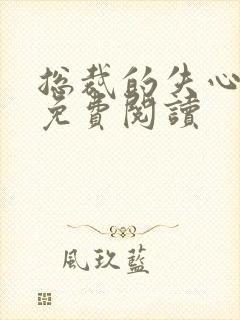 总裁的失心
免費閱讀
風玖藍